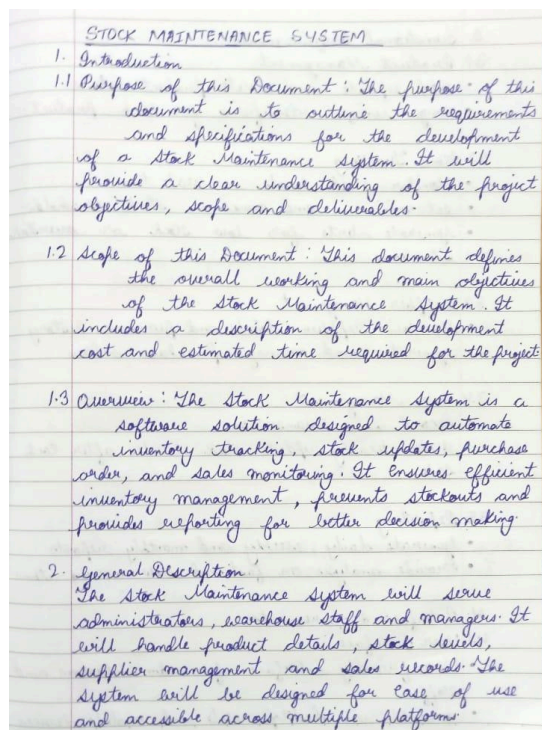 STOCK MAINTENANCE SYSTEM
1. Introduction
1.1 Purpose of this Document : The purpose of this
document is to outline the requirements
and specifications for the development
of a Stock Maintenance System. It will
provide a clear understanding of the project
objectives, scope and deliverables.
1.2 Scope of this Document : This document defines
the overall working and main objectives
of the Stock Maintenance System. It
includes a description of the development
cost and estimated time required for the project.
1.3 Overview : The Stock Maintenance System is a
software solution designed to automate
inventory tracking, stock updates, purchase
order, and sales monitoring. It ensures efficient
inventory management, prevents stockouts and
provides reporting for better decision making.
2. General Description
The Stock Maintenance System will serve
administrators, warehouse staff and managers. It
will handle product details, stock levels,
supplier management and sales records. The
system will be designed for ease of use
and accessible across multiple platforms.